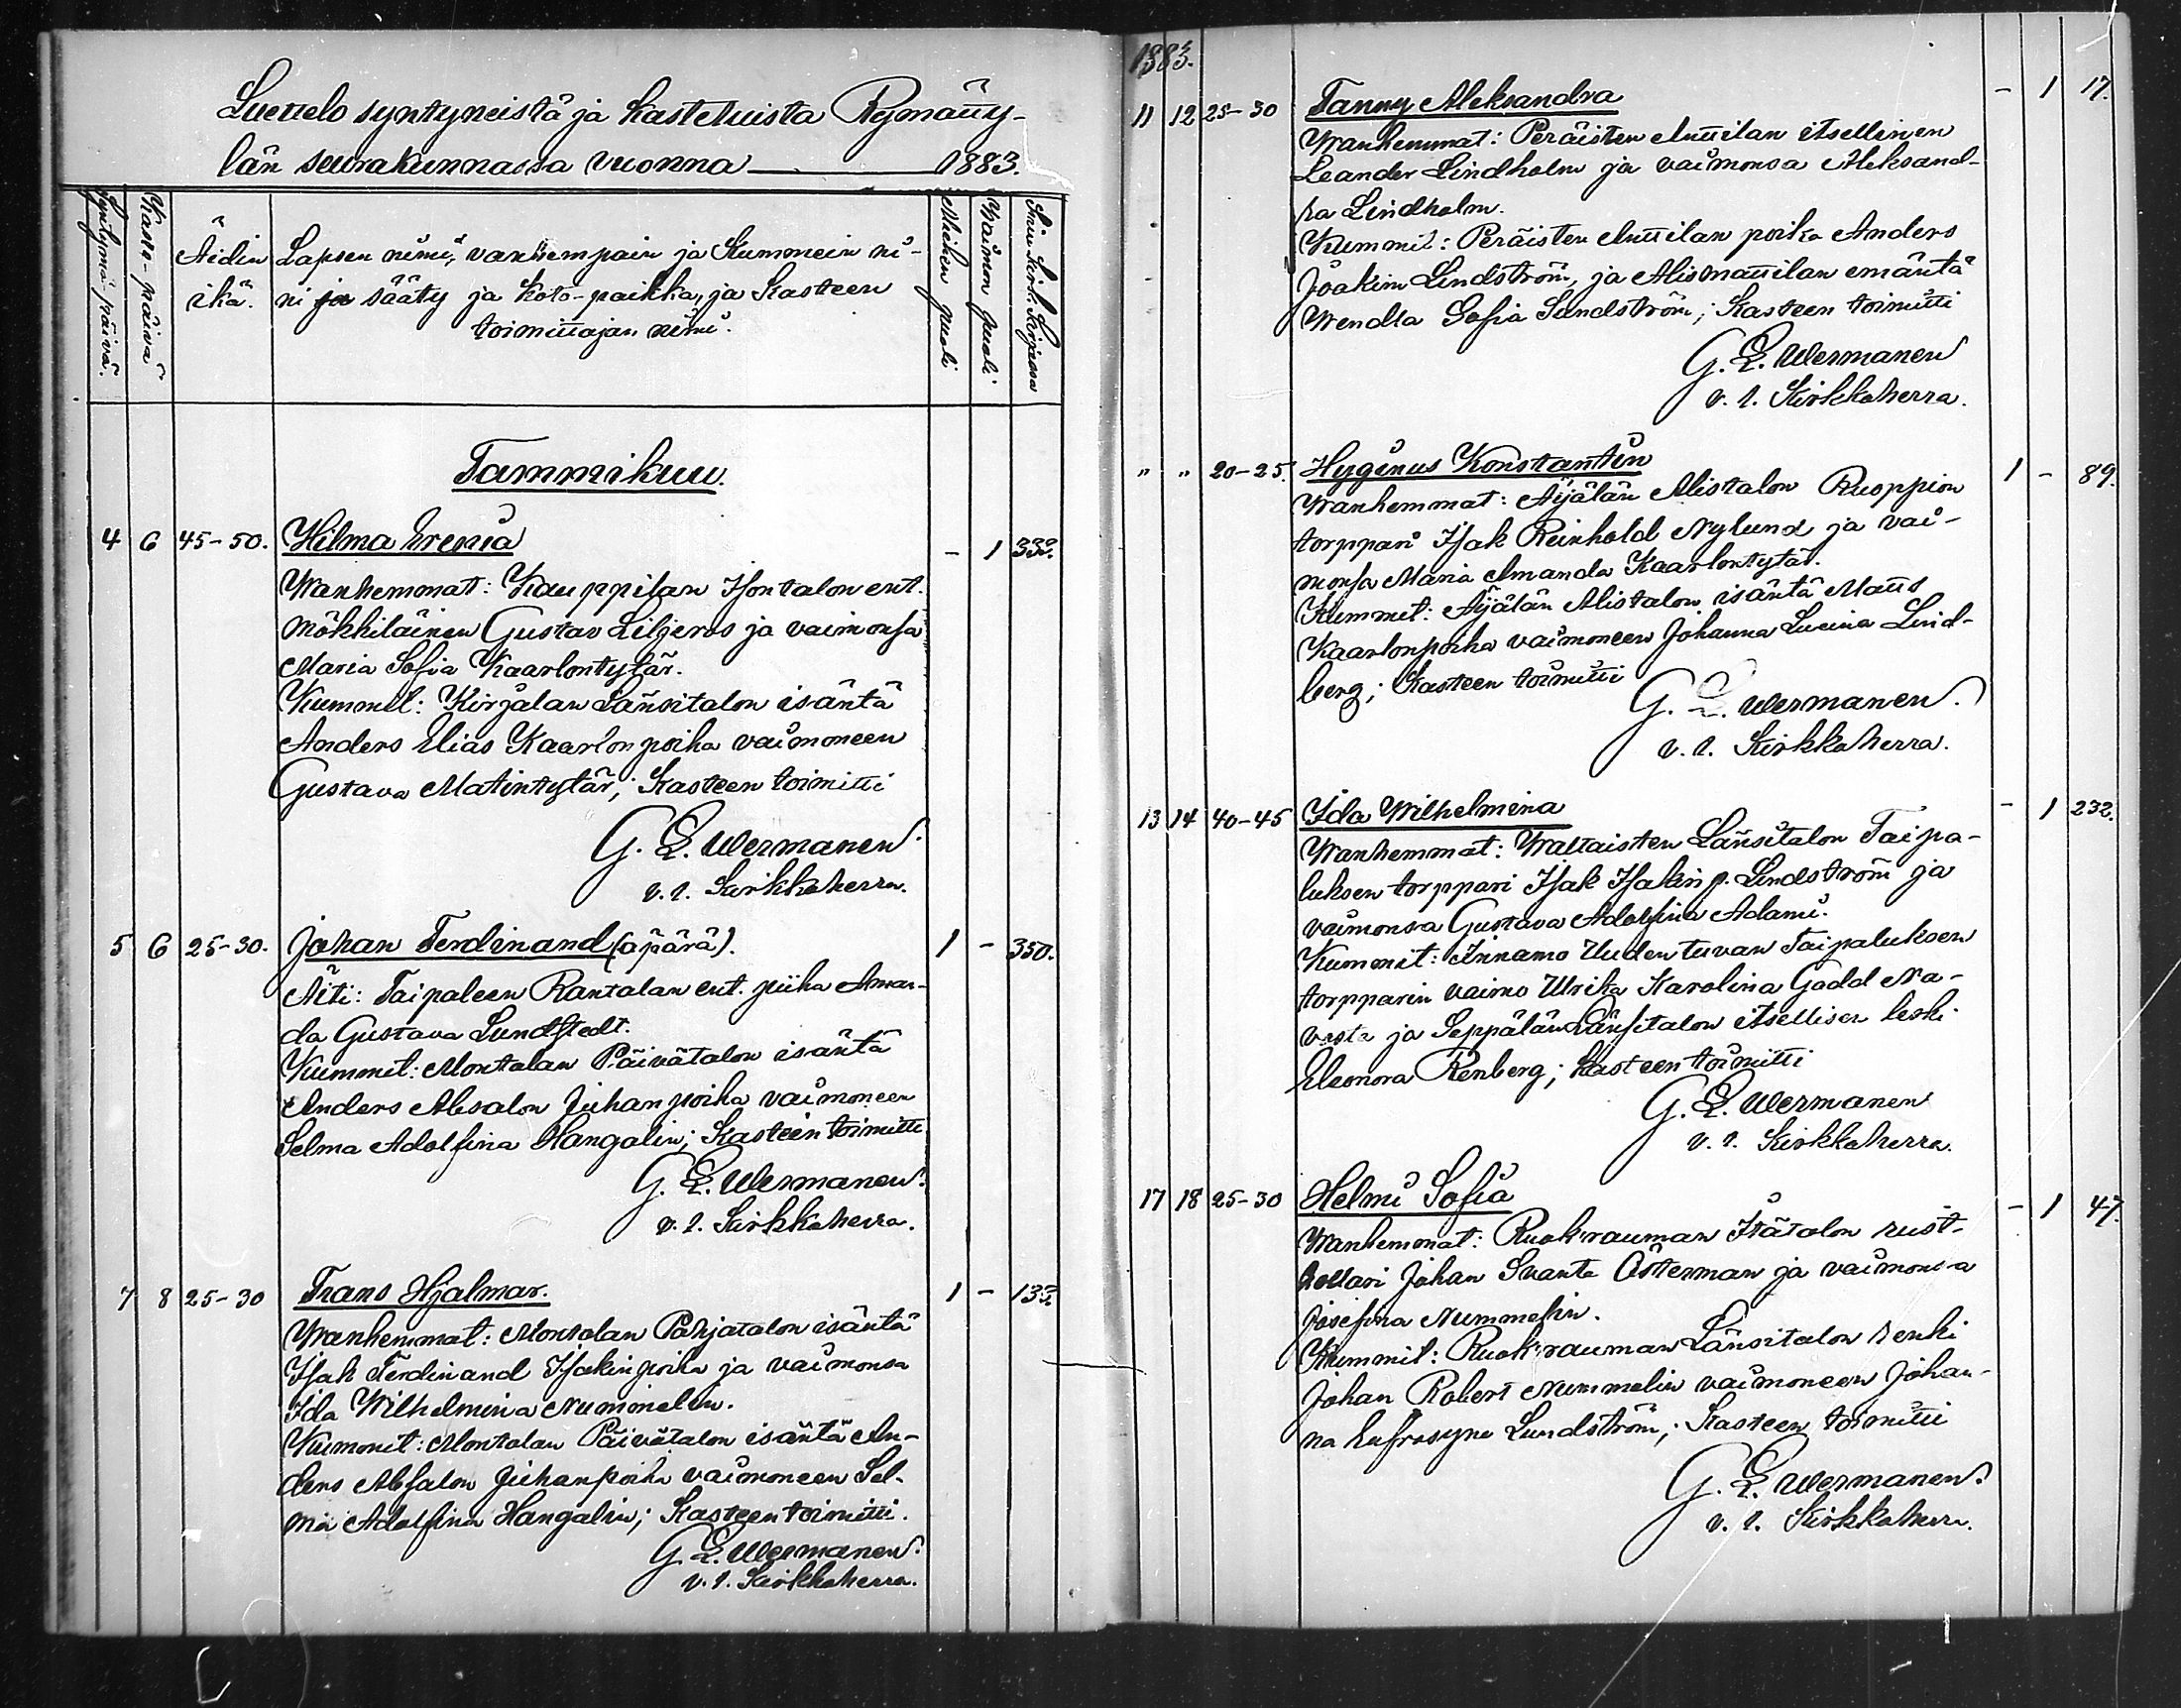 Luettelo syntyneistä ja kastetuista Rymätty-
län seurakunnassa vuonna 1883.
Syntymä päivä.
Kaste-päivä
Äidin
ikä.
Lapsen nimi, vanhempain ja Kummein ni-
ni ja sääty ja Koto-paikka, ja Kasteen
toimittajan nimi.
Miehen puoli
Vaimon puoli
Tammikuu.
4 6 45-50. Hilma Irenia - 1 332.
Wanhemmat: Kauppilan Isontalon ent.
Mökkiläinen Gustav Liljeros ja vaimonsa
Maria Sofia Kaarlontytär.
Kummit: Kirjalan Länsitalon isäntä
Anders Elias Kaarlonpoika vaimoneen
Gustava Matintytär; Kasteen toimitti
G. E. Wermanen
v. t. Kirkkoherra.
5 6 25-30. Johan Ferdinand (äpärä). 1 - 350.
Äiti: Taipaleen Rantalan ent. piika Aman-
da Gustava Lundstedt.
Kummit: Montalan Päivätalon isäntä
Anders Absalon Juhanpoika vaimoneen
Selma Adolfina Hangelin; Kasteen toimitti
G. E. Wermanen.
v. t. Kirkkoherra.
7 8 25-30 Frans Hjalmar. 1 - 133.
Wanhemmat: Montalan Pohjatalon isäntä
Isak Ferdinand Isakinpoika ja vaimonsa
Ida Wilhelmina Nummelin.
Kummit: Montalan Päivätalon isäntä An-
ders Absalon Juhanpoika vaimoneen Sel-
ma Adolfina Hangelin; Kasteen toimitti.
G. E. Wermanen.
v. t. Kirkkoherra.
1883.
11 12 25-30 Fanny Aleksandra - 1 17.
Wanhemmat: Peräisten Anttilan itsellinen
Leander Lindholm ja vaimonsa Aleksand-
ra Lindholm.
Kummit: Peräisten Anttilan poika Anders
Joakim Lindström, ja Alismattilan emäntä
Wendla Sofia Sundström; Kasteen toimitti
G. E. Wermanen
v. t. Kirkkoherra.
" " 20-25. Hyginus Konstantin 1 - 89.
Wanhemmat: Äijälän Alistalon Ruoppion
torppari Isak Reinhold Nylund ja vai-
monsa Maria Amanda Kaarlontytär.
Kummit: Äijälän Alistalon isäntä Matts
Kaarlonpoika vaimoneen Johanna Lucina Lind-
berg; Kasteen toimitti
G. E. Wermanen.
v. t. Kirkkoherra.
13 14 40-45 Ida Wilhelmina - 1 232.
Wanhemmat: Wattaisten Länsitalon Taipa-
luksen torppari Isak Isakin p. Lindström ja
vaimonsa Gustava Adolfina Adami.
Kummit: Innamo Uudentuvan Taipaluksen
torpparin vaimo Ulrika Karolina Gadd Na-
vosta ja Seppälän Länsitalon itsellisen leski
Eleonora Renberg; Kasteen toimitti
G. E. Wermanen
v. t. Kirkkoherra.
17 18 25-30 Helmi Sofia - 1 47.
Wanhemmat: Ruokrauman Itätalon rust-
hollari Johan Svante Österman ja vaimonsa
Josefina Nummelin.
Kummit: Ruokrauman Länsitalon renki
Johan Robert Nummelin vaimoneen Johan-
na Eufrosyne Lundström; Kasteen toimitti
G. E. Wermanen.
v. t. Kirkkoherra.